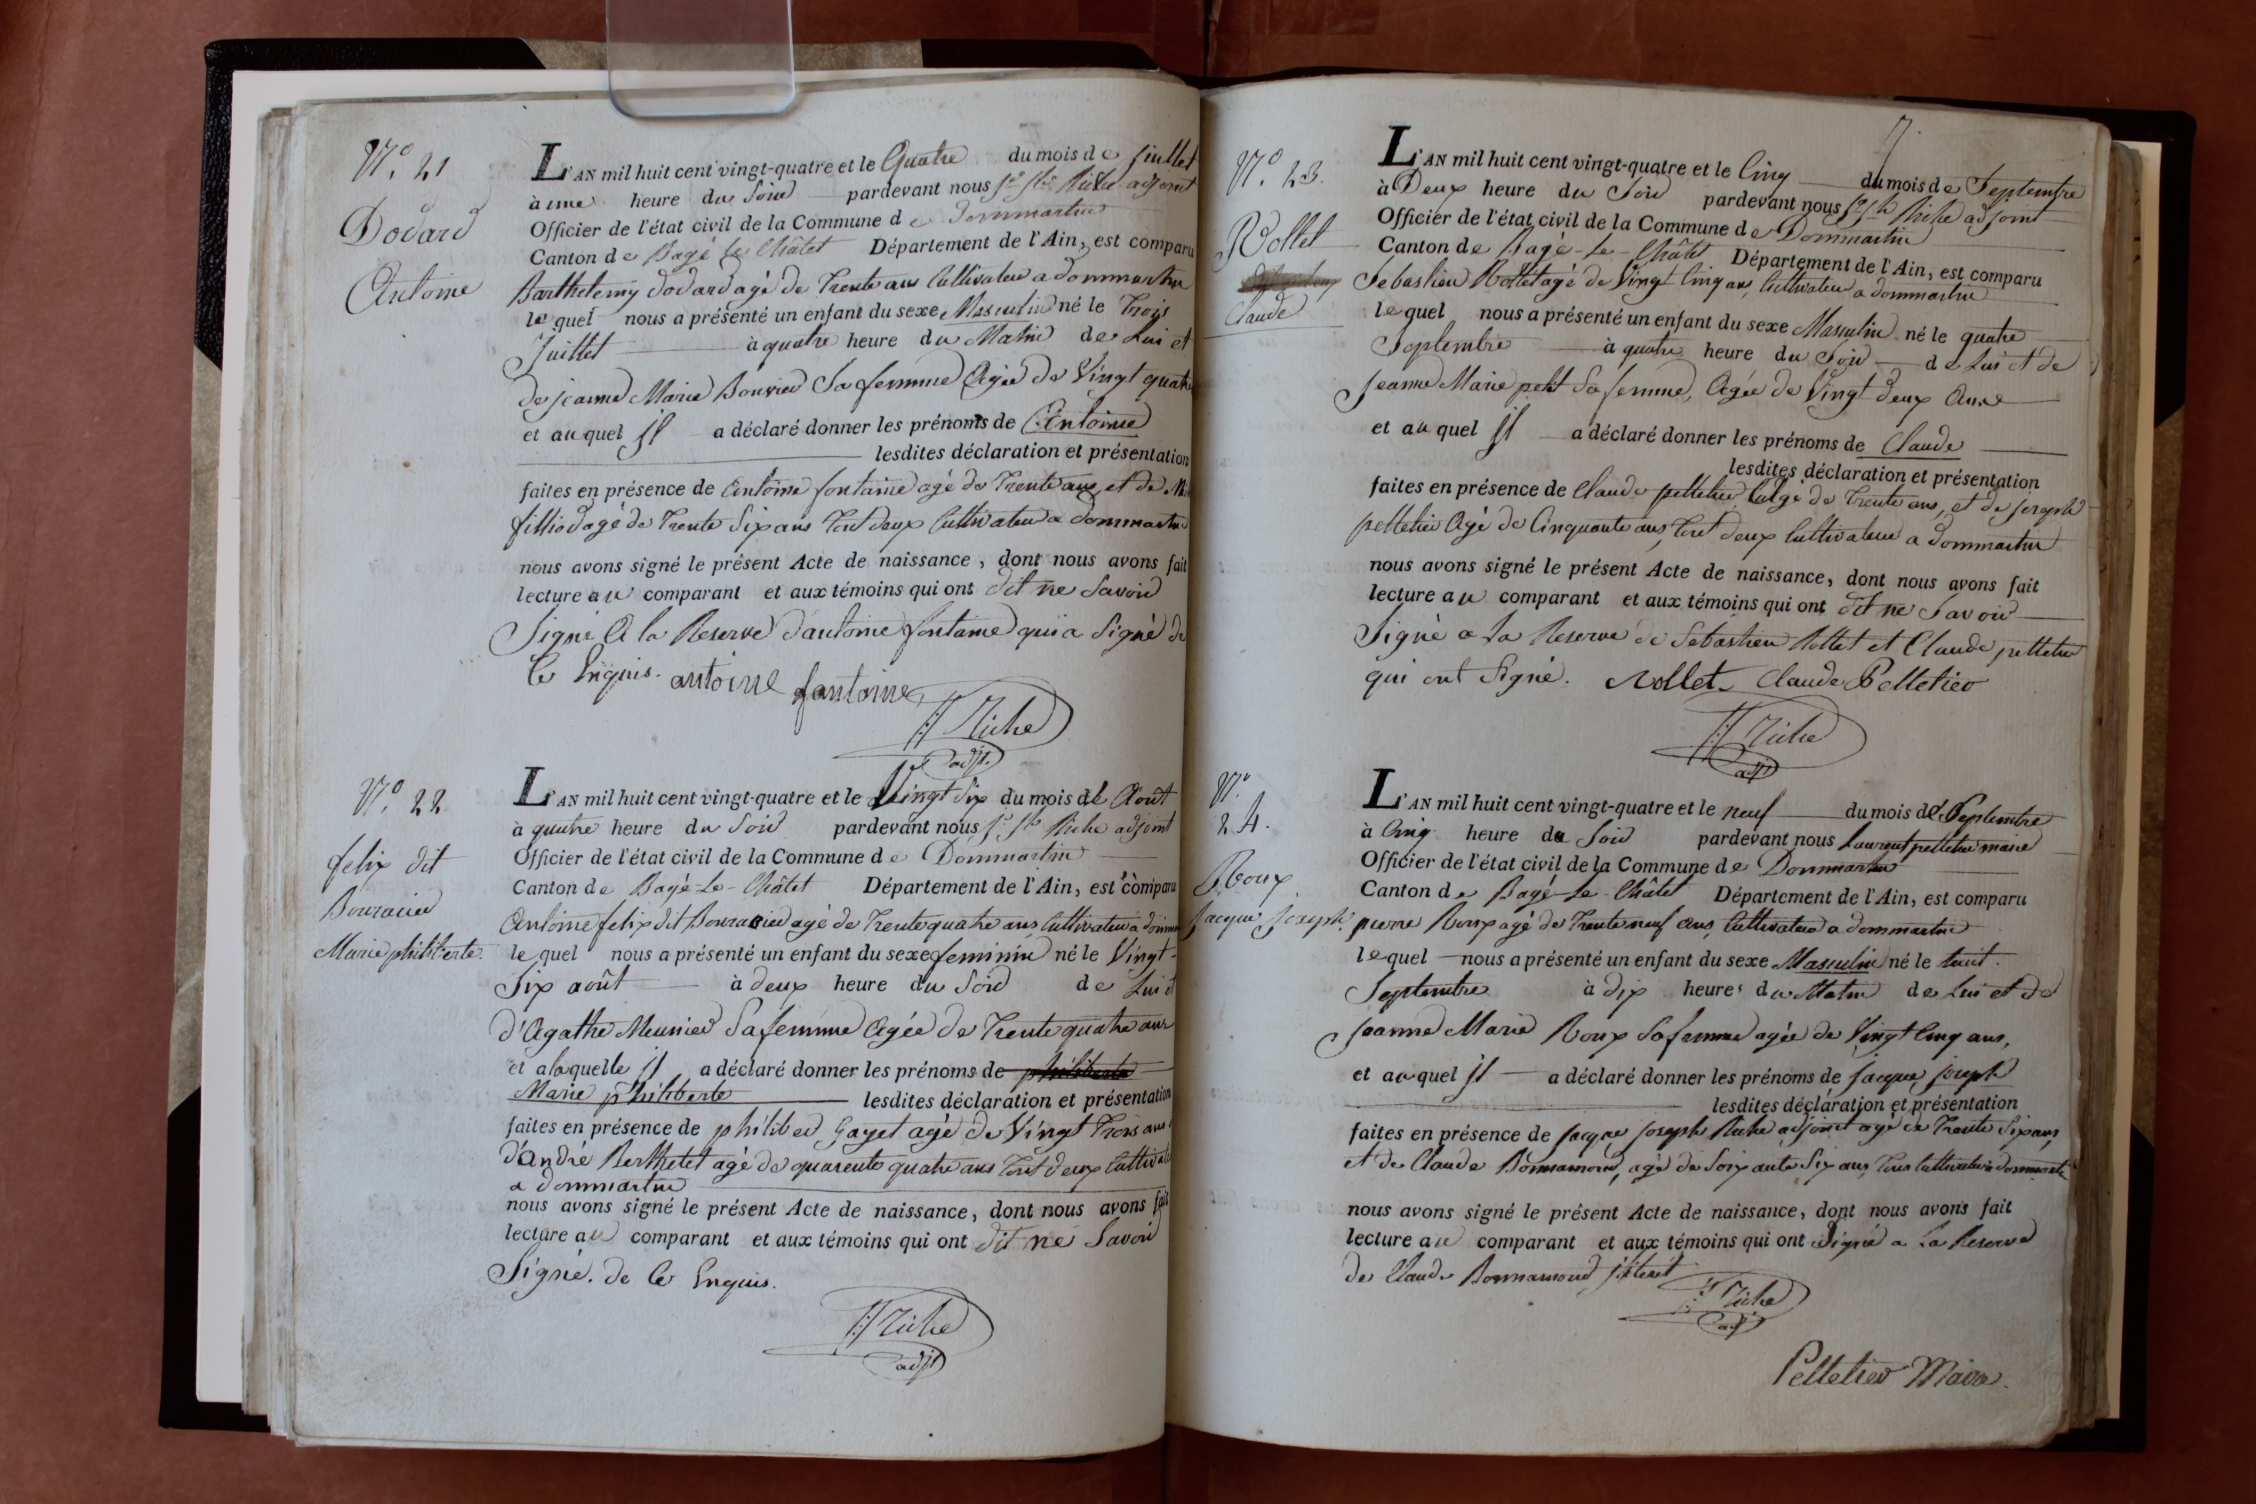 N.o 21
Dodard
Antoine
L'AN mil huit cent vingt-quatre et le Quatre du mois de juillet
à une heure du Soir pardevant nous Riche adjoint
Officier de l'état civil de la Commune de Dommartin
Canton de Bagé le Châtel Département de l'Ain, est comparu
Barthelemy dodard agé de Trente ans Cultivateur a dommartin
lequel nous a présenté un enfant du sexe Masculin né le Trois
Juillet à quatre heure du Matin de Lui et
de jeanne Marie Bouvier Sa femme Agée de Vingt quatre
et auquel il a déclaré donner les prénoms de Antoine
lesdites déclaration et présentation
faites en présence de Antoine fontaine agé de Trente ans, et de
filliod agé de Trente Six ans Tout deux Cultivateur a dommartin
nous avons signé le présent Acte de naissance, dont nous avons fait
lecture au comparant et aux témoins qui ont dit ne Savoir
Signé A la Reserve d'antoine fontaine qui a Signé de
Ce Enquis. antoine fontaine
Riche
adjt.
N.o 22
felix dit
Bouracier
Marie philiberte.
L'AN mil huit cent vingt-quatre et le Vingt Six du mois de Août
à quatre heure du Soir pardevant nous Riche adjoint
Officier de l'état civil de la Commune de Dommartin
Canton de Bagé-Le-Châtel Département de l'Ain, est comparu
Antoine felix dit Bouracier agé de Trente quatre ans Cultivateur a domm
lequel nous a présenté un enfant du sexe feminin né le Vingt-
Six août à deux heure du Soir de Lui et
d'Agathe Meunier Sa femme Agée de Trente quatre ans
et a laquelle il a déclaré donner les prénoms de philiberte
Marie philiberte lesdites déclaration et présentation
faites en présence de philiber Gayet agé de Vingt Trois ans
d'andré Berthetet agé de quarente quatre ans Tout deux Cultivat
a dommartin
nous avons signé le présent Acte de naissance, dont nous avons fait
lecture au comparant et aux témoins qui ont dit ne Savoir
Signé. de Ce Enquis.
Riche
adjt
7.
N.o 23.
Rollet
Claude
L'AN mil huit cent vingt-quatre et le Cinq du mois de Septembre
à Deux heure du Soir pardevant nous Riche adjoint
Officier de l'état civil de la Commune de Dommartin
Canton de Bagé-Le-Châtel Département de l'Ain, est comparu
Sebastien Rollet agé de Vingt Cinq ans, Cultivateur a dommartin
lequel nous a présenté un enfant du sexe Masculin né le quatre
Septembre à quatre heure du Soir de Lui et de
Jeanne Marie petit Sa femme, Agée de Vingt deux Ans
et auquel il a déclaré donner les prénoms de Claude
lesdites déclaration et présentation
faites en présence de Claude pelletier agé de Trente ans, et de joseph
pelletier Agé de Cinquante ans, Tout deux Cultivateur a dommartin
nous avons signé le présent Acte de naissance, dont nous avons fait
lecture au comparant et aux témoins qui ont dit ne Savoir
Signé a La Reserve de Sebastien Rollet et Claude pelletier
qui ont Signé. Rollet Claude Pelletier
Riche
adjt
N.o
24.
Roux
Jacque Joseph.
L'AN mil huit cent vingt-quatre et le neuf du mois de Septembre
à Cinq heure du Soir pardevant nous Laurent pelletier maire
Officier de l'état civil de la Commune de Dommartin
Canton de Bagé-Le-Châtel Département de l'Ain, est comparu
pierre Roux agé de Trente neuf ans, Cultivateur a dommartin
lequel nous a présenté un enfant du sexe Masculin né le huit.
Septembre à dix heures du Matin de Lui et de
Jeanne Marie Roux Sa femme agée de Vingt Cinq ans,
et auquel il a déclaré donner les prénoms de jacque joseph
lesdites déclaration et présentation
faites en présence de jacque joseph Riche adjoint agé de Trente Six ans,
et de Claude Bonnamour, agé de Soixante Six ans, Tous Cultivateur a dommartin
nous avons signé le présent Acte de naissance, dont nous avons fait
lecture au comparant et aux témoins qui ont Signé a La Reserve
de Claude Bonnamour
Riche
adjt
Pelletier Maire.